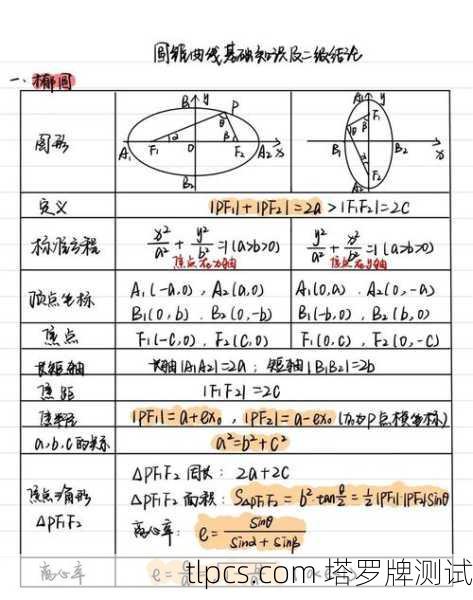 圆锥曲线基础知识及二级结论
一、椭圆
图形
B₁ y P θ α β A₁ F₁ O F₂ A₂ x B₂
A₁ y F₁ β θ B₁ B₂ x α F₂ A₂
定义 |PF₁|+|PF₂|=2a>|F₁F₂|=2c
标准方程 x²/a²+y²/b²=1(a>b>0) 焦点在x轴 y²/a²+x²/b²=1(a>b>0) 焦点在y轴
顶点坐标 A₁(-a,0), A₂(a,0) A₁(0,a). A₂(0,-a)
B₁(0,b). B₂(0,-b) B₁(-b,0), B₂(b,0)
焦点 F₁(-c,0). F₂(c,0) F₁(0,c), F₂(0,-c)
长短轴 长轴|A₁A₂|=2a; 短轴|B₁B₂|=2b
焦距 |F₁F₂|=2c
焦半径 |PF₁|=a+ex₀, |PF₂|=a-ex₀ (x₀为P点横坐标)
a,b,c的关系 a²=b²+c²
焦点三角形 △PF₁F₂
△PF₁F₂ 周长: 2a+2c
△PF₁F₂ 面积: S△PF₁F₂=b²tanθ/2=1/2|PF₁||PF₂|sinθ
离心率: e=sinθ/(sinα+sinβ)
离心率 e=
tlpcs.com 塔罗牌测试